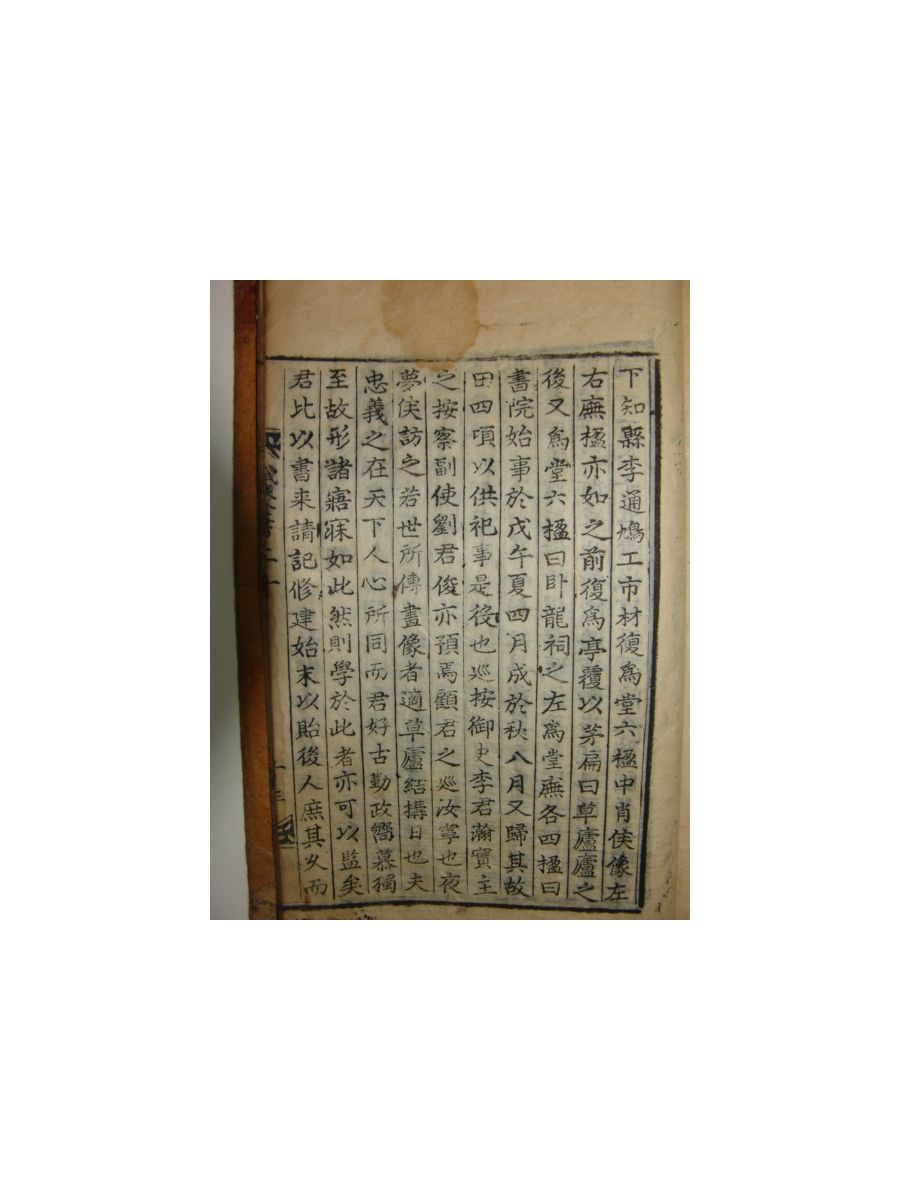 下知縣李通鳩工市材復爲堂六楹中肖侯像左
右廡楹亦如之前復爲亭覆以茅扁曰草廬廬之
後又爲堂六楹曰卧龍祠之左爲堂廡各四楹曰
書院始事於戊午夏四月成於秋八月又歸其故
田四頃以供祀事是役也巡按御史李君瀚寔主
之按察副使劉君俊亦預焉顧君之巡汝寧也夜
夢侯訪之若世所傳畫像者適草廬結搆日也夫
忠義之在天下人心所同而君好古勤政嚮慕獨
至故形諸寤寐如此然則學於此者亦可以監矣
君比以書来請記修建始末以貽後人庶其乆而